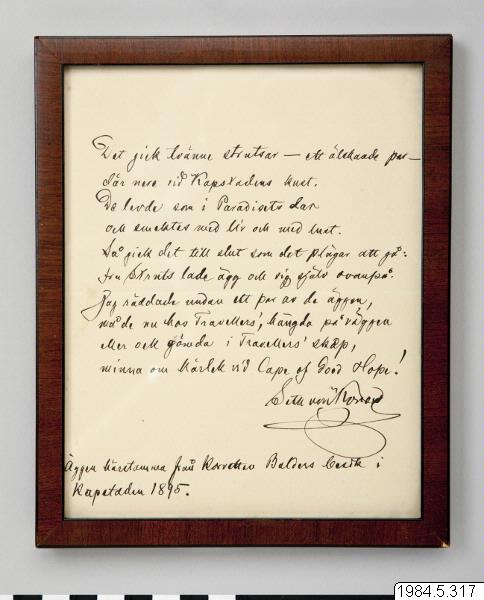 Det gick tvänne strutsar — ett älskande par —
där nere vid Kapstadens kust.
De levde som i Paradisets dar
och smektes med liv och med lust.
Så gick det till slut som det plägar att gå:
fru Struts lade ägg och sig själv ovanpå.
Jag räddade undan ett par av de äggen,
må de nu hos Travellers', hängda på väggen
eller ock gömda i Travellers' skåp,
minna om kärlek vid Cape of Good Hope!
Seth von
Äggen härstamma från Korvetten Balders besök i
Kapstaden 1895.
1984.5.317